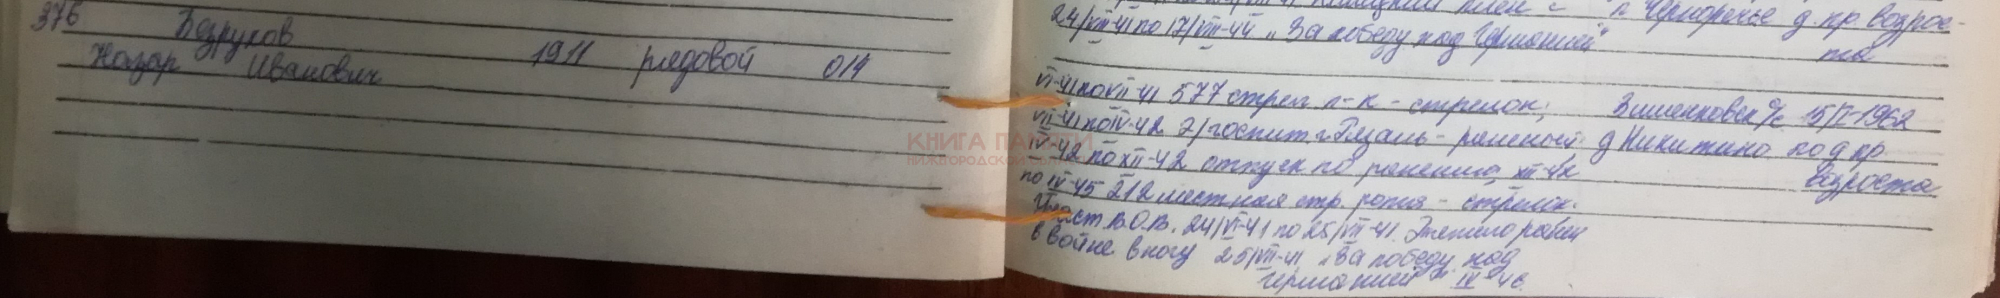 376 Безруков
Назар Иванович 1911 рядовой 014
п. Черноречье д. пр. возрос-
24/VII-41 по 17/VIII-44 „За победу над Германией" та
VI-41 по VII-41 577 стрел. п-к - стрелок; Зименковск с/с 15/I-1962
VII-41 по IV-42 э/госпит. г. Рязань - раненый д Никитино под пр
IV-42 по XII-42 отпуск по ранению, XII-42 возроста
по IV-45 212 местная стр. рота - стрелок.
Участ. В.О.В. 24/VI-41 по 25/VII-41. Тяжело ранен
в войне в ногу 25/VII-41 „За победу над
Германией" IX 46
КНИГА ПАМЯТИ
НИЖЕГОРОДСКОЙ ОБЛАСТИ